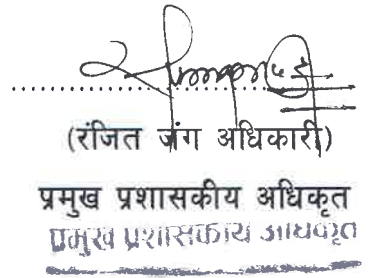 (रंजित जंग अधिकारी)
प्रमुख प्रशासकीय अधिकृत
प्रमुख प्रशासकीय अधिकृत